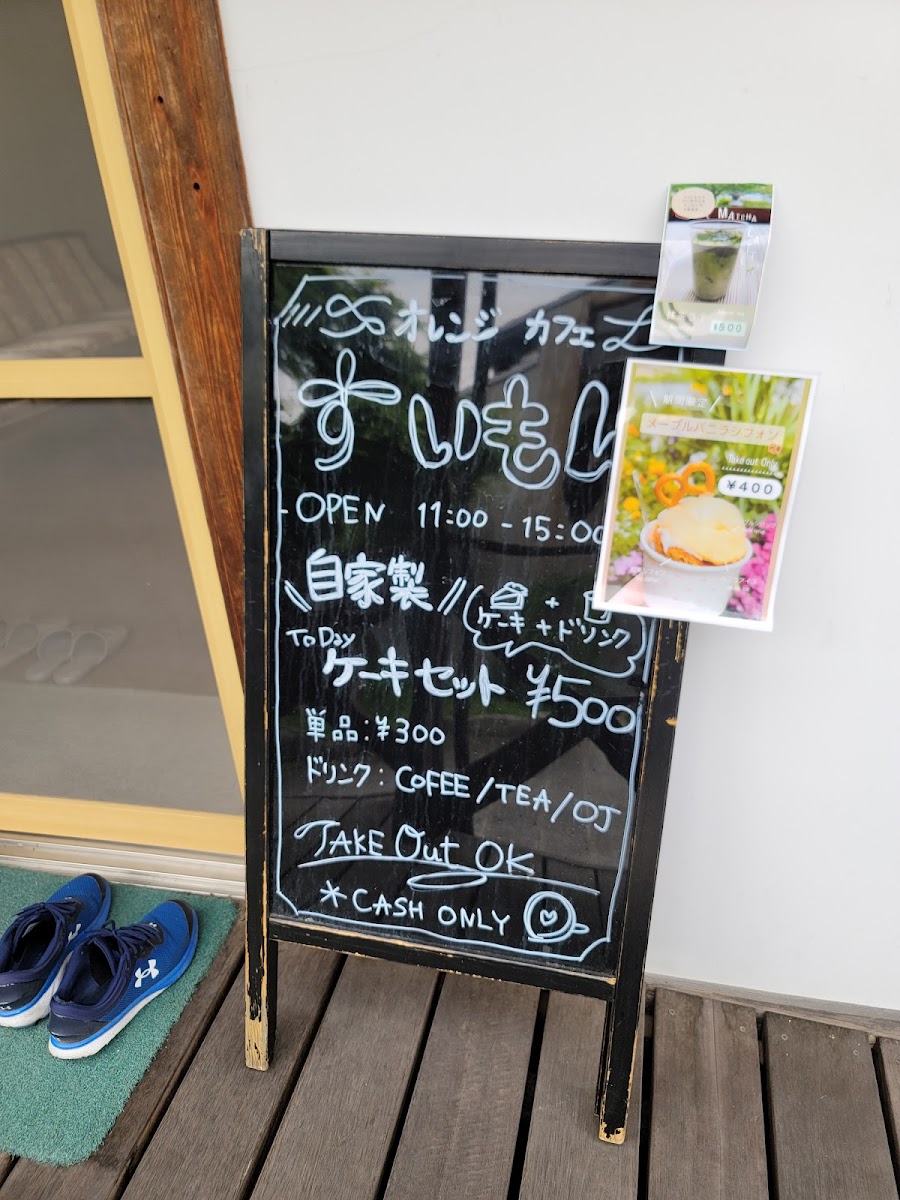 オレンジ カフェ
すいもい
OPEN 11:00 - 15:00
自家製
ケーキ + ドリンク
ToDay
ケーキセット ¥500
単品:¥300
ドリンク: COFEE/TEA/OJ
TAKE Out OK
*CASH ONLY
MATCHA
¥500
期間限定
メープルバニラシフォン
Take out Only
¥400